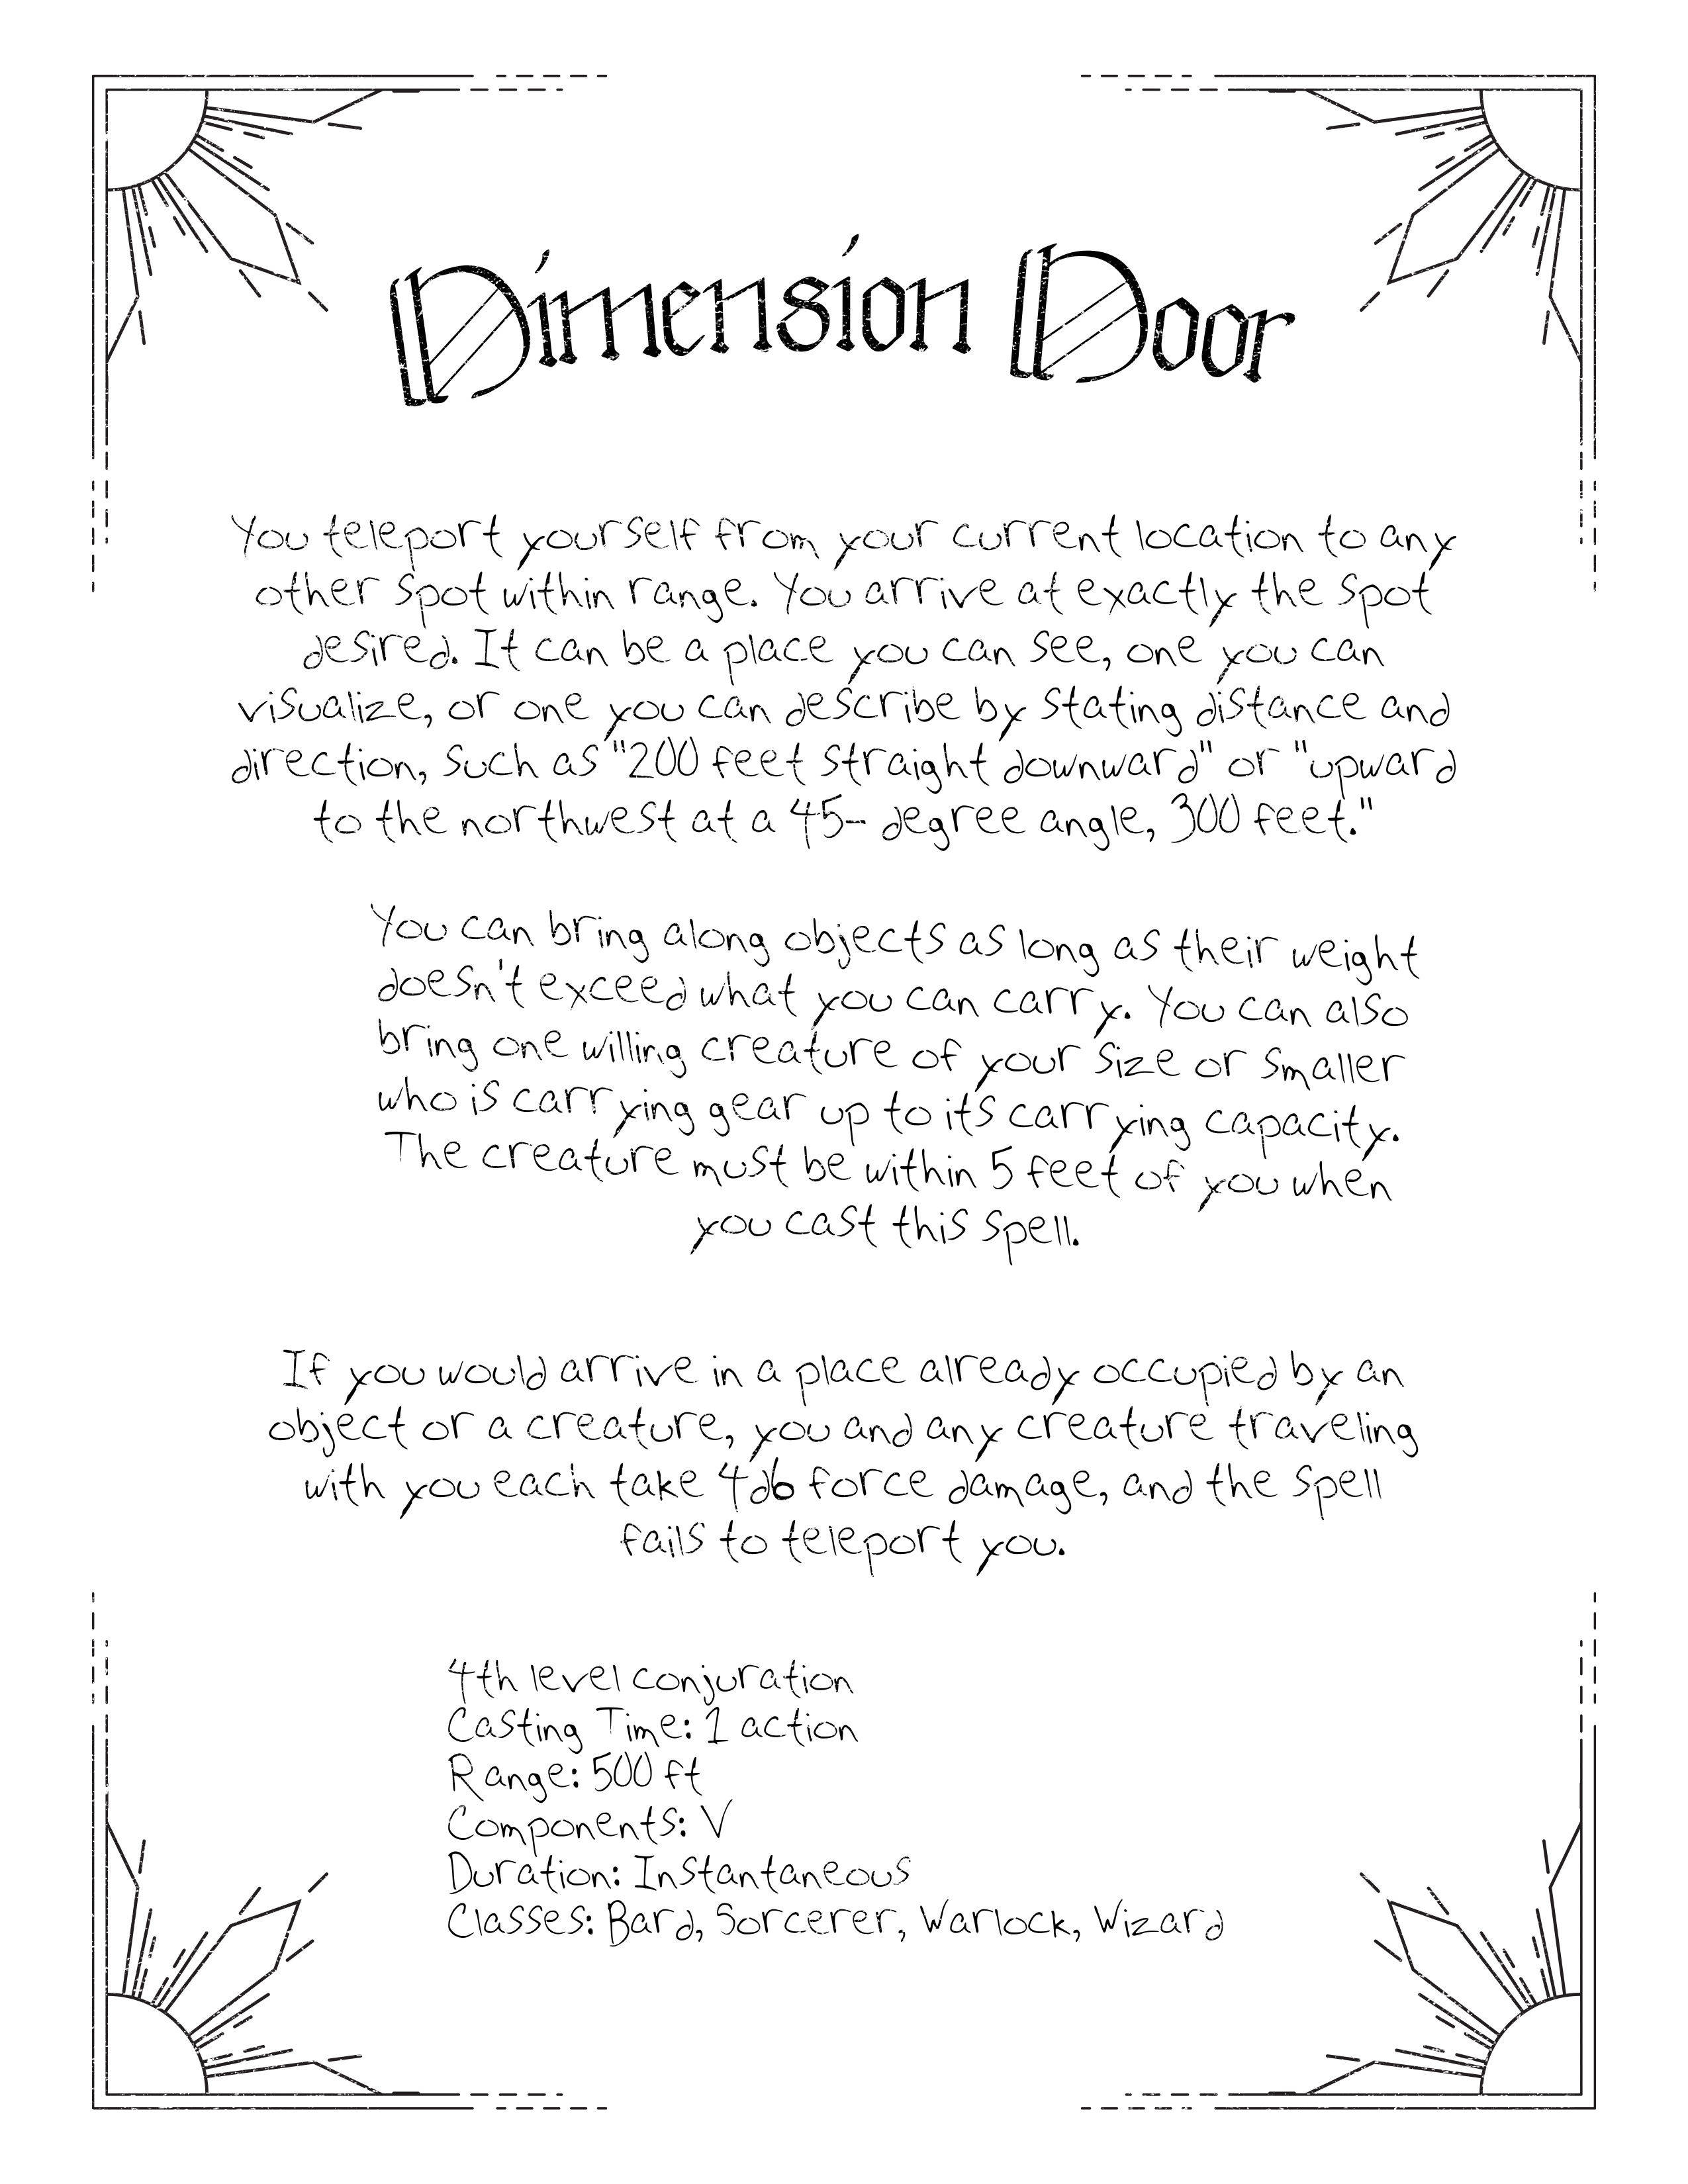 Dimension Door
You teleport yourself from your current location to any
other spot within range. You arrive at exactly the spot
desired. It can be a place you can see, one you can
visualize, or one you can describe by stating distance and
direction, such as "200 feet straight downward" or "upward
to the northwest at a 45- degree angle, 300 feet."
You can bring along objects as long as their weight
doesn't exceed what you can carry. You can also
bring one willing creature of your size or smaller
who is carrying gear up to its carrying capacity.
The creature must be within 5 feet of you when
you cast this spell.
If you would arrive in a place already occupied by an
object or a creature, you and any creature traveling
with you each take 4d6 force damage, and the spell
fails to teleport you.
4th level conjuration
Casting Time: 1 action
Range: 500 ft
Components: V
Duration: Instantaneous
Classes: Bard, Sorcerer, Warlock, Wizard